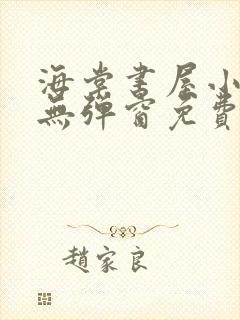 海棠書屋小
無彈窗免費
趙家良